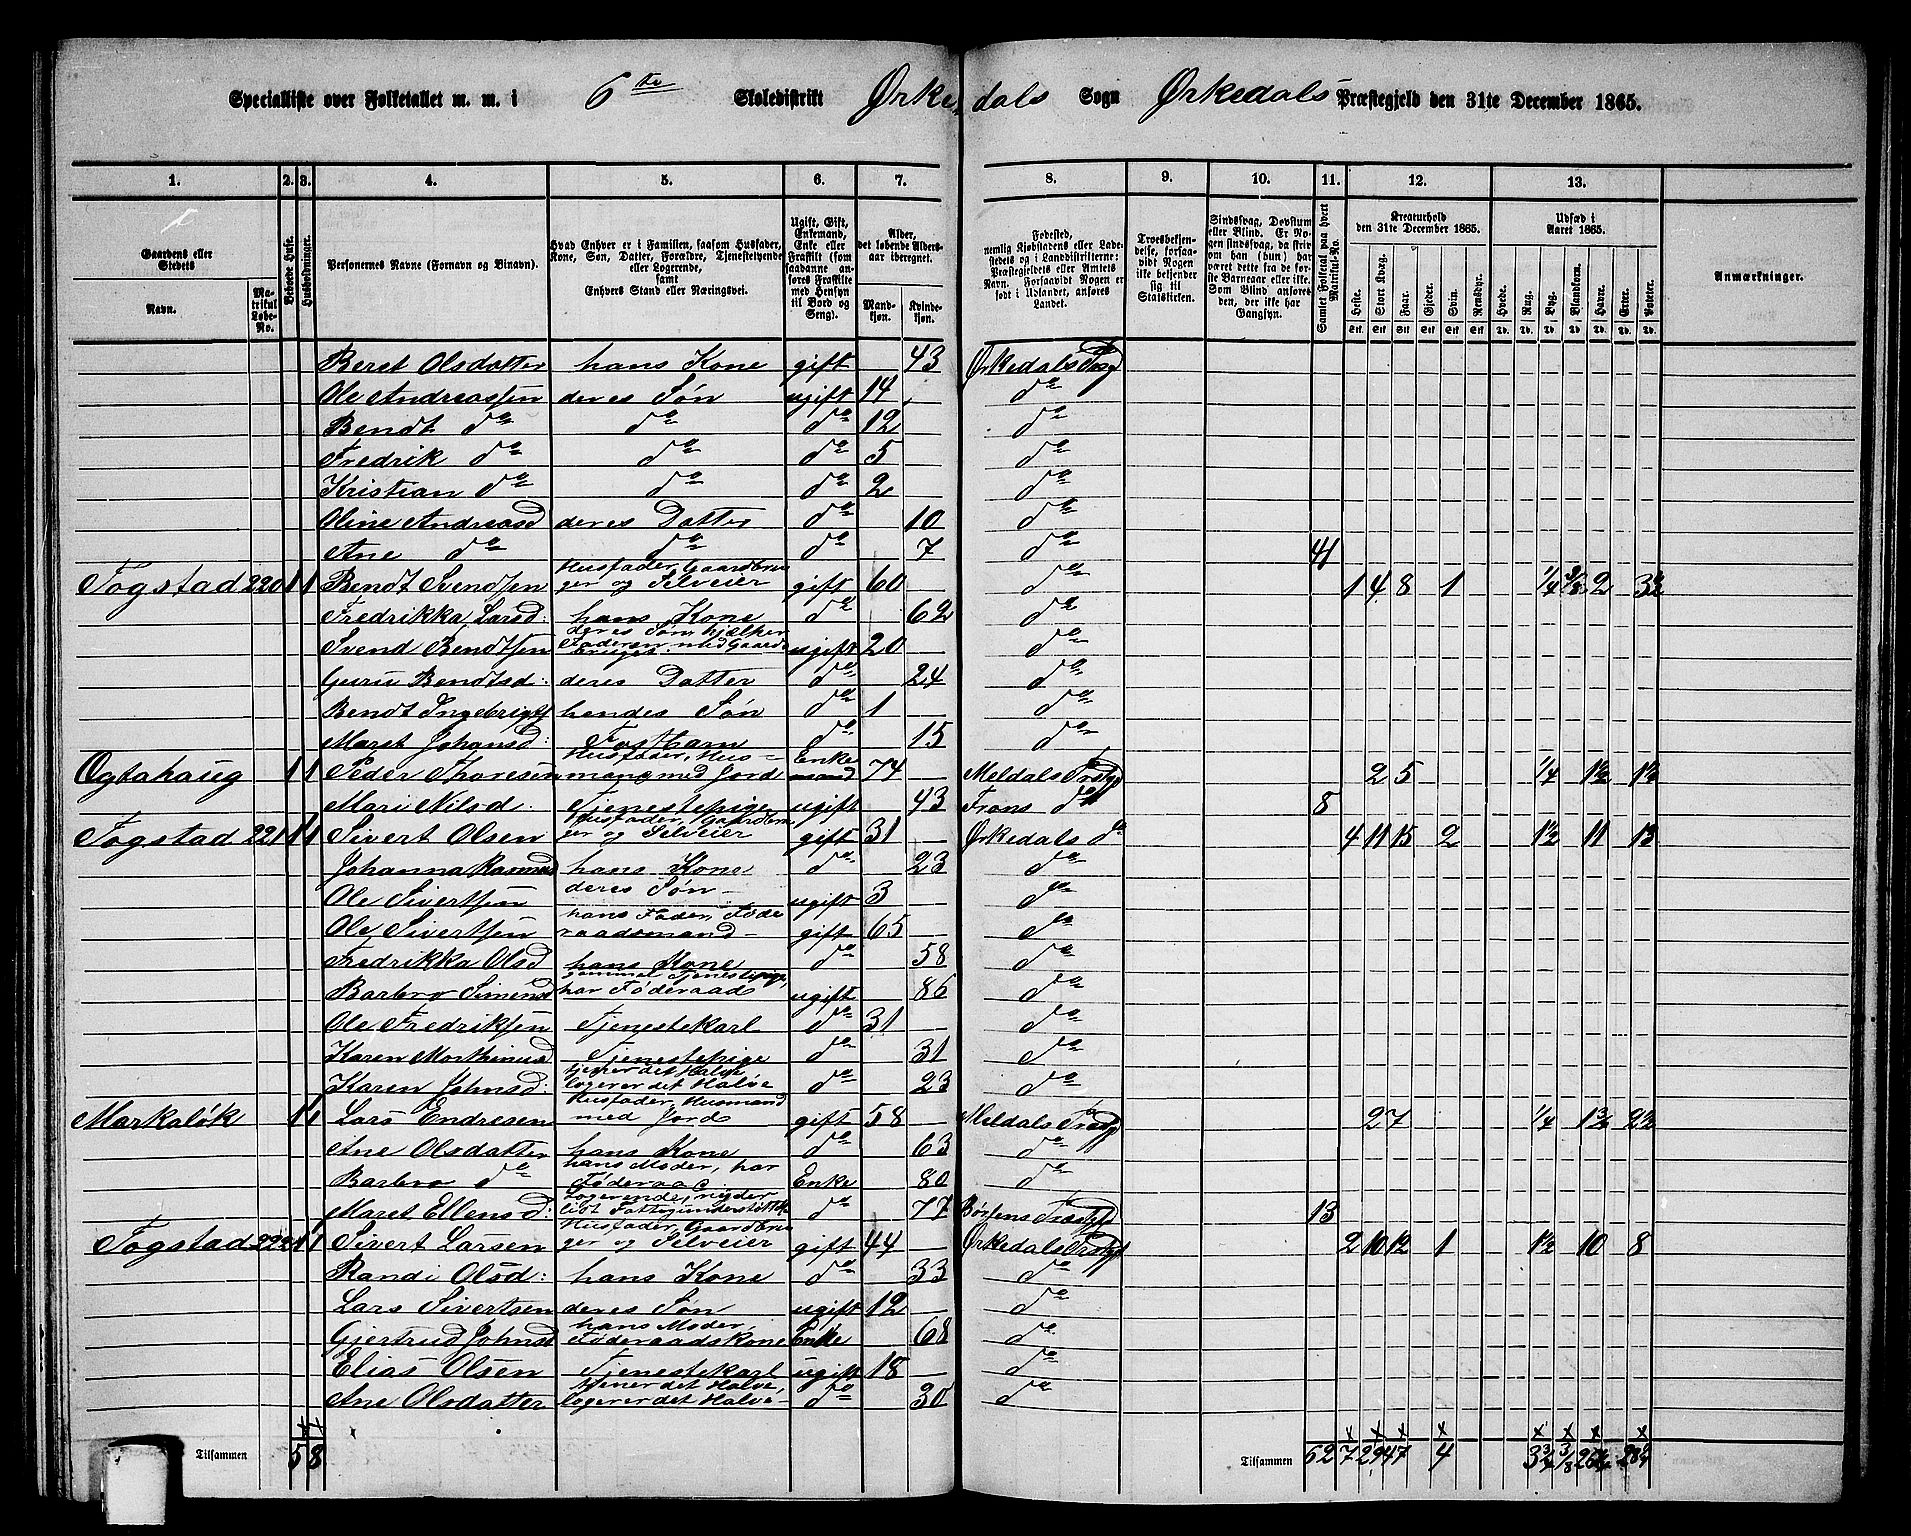 Specialliste over Folketallet m. m. i 6te Skoledistrikt Ørkedals Sogn Ørkedals Præstegjeld den 31te December 1865.
1. 2. 3. 4. 5. 6. 7. 8. 9. 10. 11. 12. 13.
Gaardens eller Stedets
Navn. Matrikul Løbe-No.
Beboede Huse.
Husholdninger.
Personernes Navne (Fornavn og Binavn).
Hvad Enhver er i Familien, saasom Husfader, Kone, Søn, Datter, Forældre, Tjenestetyende eller Logerende, samt Enhvers Stand eller Næringsvei.
Ugift, Gift, Enkemand, Enke eller Fraskilt (som saadanne anføres Fraskilte med Hensyn til Bord og Seng).
Alder, det løbende Aldersaar iberegnet.
Mandkjøn. Kvindekjøn.
Fødested, nemlig Kjøbstadens eller Ladestedets og i Landdistrikterne: Præstegjeldets eller Amtets Navn. Forsaavidt Nogen er født i Udlandet, anføres Landet.
Troesbekjendelse, forsaavidt Nogen ikke bekjender sig til Statskirken.
Sindssvag, Døvstum eller Blind. Er Nogen sindssvag, da skrives om han (hun) har været dette fra de første Barneaar eller ikke. Som Blind anføres den, der ikke har Gangsyn.
Samlet Folketal paa hvert Matrikul-No.
Kreaturhold den 31te December 1865.
Heste. Stort Kvæg. Faar. Gjeder. Svin. Rensdyr.
Udsæd i Aaret 1865.
Hvede. Rug. Byg. Blandkorn. Havre. Erter. Poteter.
Anmærkninger.
Beret Olsdatter hans Kone gift 43 Ørkedals Prstgj
Ole Andreassen deres Søn ugift 14 do
Bendt do do do 12 do
Fredrik do do do 5 do
Kristian do do do 2 do
Oline Andreasd deres Datter do 10 do
Ane do do do 7 do 41
Togstad 220 1 1 Bendt Svendsen Husfader, Gaardbruger og Selveier gift 60 do 1 4 8 1 1/4 3/8 2 3 1/2
Fredrikka Larsd: hans Kone do 62 do
Svend Bendtsen deres Søn, hjælper Faderen med Gaardsbruget ugift 20 do
Guru Bendtsd: deres Datter do 24 do
Bendt Ingebrigts hendes Søn do 1 do
Maret Johansd: Fosterbarn do 15 do
Ogtahaug 1 1 Peder Thoresen Husfader, Husmand med Jord Enkemand 74 Meldals Prstgj 2 5 1/4 1 1/2 1 1/2
Mari Nilsd: Tjenestepige ugift 43 do 8
Togstad 221 1 1 Sivert Olsen Husfader, Gaardbruger og Selveier gift 31 Ørkedals do 4 11 15 2 1 1/2 11 13
Johanna Rasmusd hans Kone do 23 do
Ole Sivertsen deres Søn ugift 3 do
Ole Sivertsen hans Fader, Føderaadsmand gift 65 do
Fredrikka Olsd hans Kone do 58 do
Barbro Simensd gammel Tjenestepige, har Føderaad ugift 86 do
Ole Fredriksen Tjenestekarl do 31 do
Karen Morthinusd Tjenestepige do 31 do
Karen Johnsd: tjener det Halve logerer det Halve do 23 do
Markaløk 1 1 Lars Endresen Husfader, Husmand med Jord gift 58 Meldals Prstgj 2 7 1/4 1 1/2 2 1/2
Ane Olsdatter hans Kone do 63 do
Barbro do hans Moder, har Føderaad Enke 80 do
Maret Ellensd: Logerende, nyder lidt Fattigunderstøttelse do 77 Børsens Præstgj 13
Togstad 222 1 1 Sivert Larsen Husfader, Gaardbruger og Selveier gift 44 Ørkedals Prstgj 2 10 12 1 1 1/2 10 8
Randi Olsd: hans Kone do 33 do
Lars Sivertsen deres Søn ugift 12 do
Gjertrud Johnsd hans Moder, Føderaadskone Enke 68 do
Elias Olsen Tjenestekarl ugift 18 do
Ane Olsdatter tjener det Halve, logerer det Halve do 30 do
Tilsammen 5 8 Tilsammen 62 7 29 47 4 3 3/4 3/8